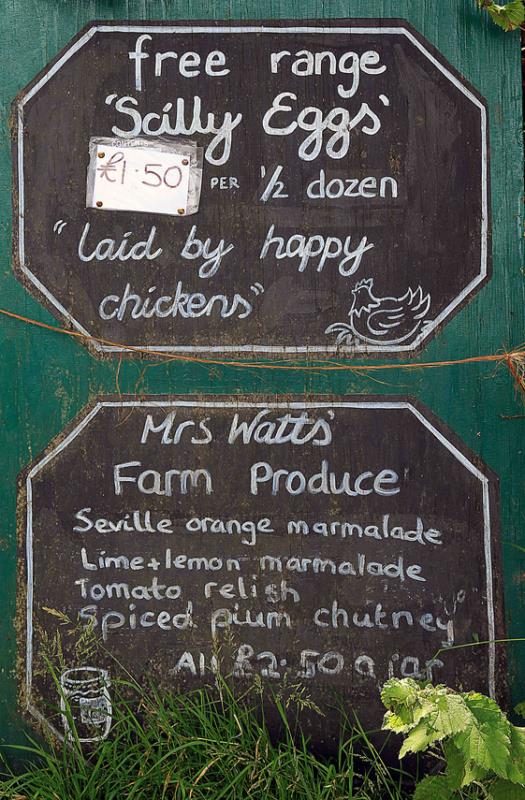 free range
'Scilly Eggs'
CONTENTS
£1.50 PER ½ dozen
"laid by happy
chickens"
Mrs Watts'
Farm Produce
Seville orange marmalade
Lime+lemon marmalade
Tomato relish
Spiced plum chutney
All £2.50 a jar